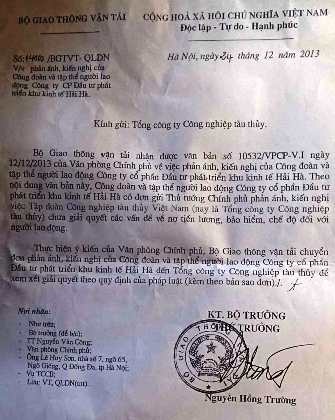 BỘ GIAO THÔNG VẬN TẢI
CỘNG HOÀ XÃ HỘI CHỦ NGHĨA VIỆT NAM
Độc lập - Tự do - Hạnh phúc
/BGTVT- QLDN
Hà Nội, ngày 24 tháng 12 năm 2013
V/v phản ánh, kiến nghị của
Công đoàn và tập thể người lao
động Công ty CP Đầu tư phát
triển khu kinh tế Hải Hà.
Kính gửi: Tổng công ty Công nghiệp tàu thủy.
Bộ Giao thông vận tải nhận được văn bản số 10532/VPCP-V.I ngày
12/12/2013 của Văn phòng Chính phủ về việc phản ánh, kiến nghị của Công đoàn và
tập thể người lao động Công ty cổ phần Đầu tư phát triển khu kinh tế Hải Hà. Theo
nội dung văn bản này, Công đoàn và tập thể người lao động Công ty cổ phần Đầu tư
phát triển khu kinh tế Hải Hà có đơn gửi Thủ tướng Chính phủ phản ánh, kiến nghị
việc Tập đoàn Công nghiệp tàu thủy Việt Nam (nay là Tổng công ty Công nghiệp
tàu thủy) chưa giải quyết các vấn đề về nợ tiền lương, bảo hiểm, chế độ đối với
người lao động.
Thực hiện ý kiến của Văn phòng Chính phủ, Bộ Giao thông vận tải chuyển
đơn phản ánh, kiến nghị của Công đoàn và tập thể người lao động Công ty cổ phần
Đầu tư phát triển khu kinh tế Hải Hà đến Tổng công ty Công nghiệp tàu thủy để
xem xét giải quyết theo quy định của pháp luật (kèm theo bản sao đơn)./.
Nơi nhận:
- Như trên;
- Bộ trưởng (để b/c);
- TT Nguyễn Văn Công;
- Văn phòng Chính phủ;
- Ông Lê Huy Sơn, nhà số 7, ngõ 65,
Ngô Giếng, Q Đống Đa, tp Hà Nội;
- Vụ TCCB;
- Lưu: VT, QLDN
KT. BỘ TRƯỞNG
THỨ TRƯỞNG
Nguyễn Hồng Trường